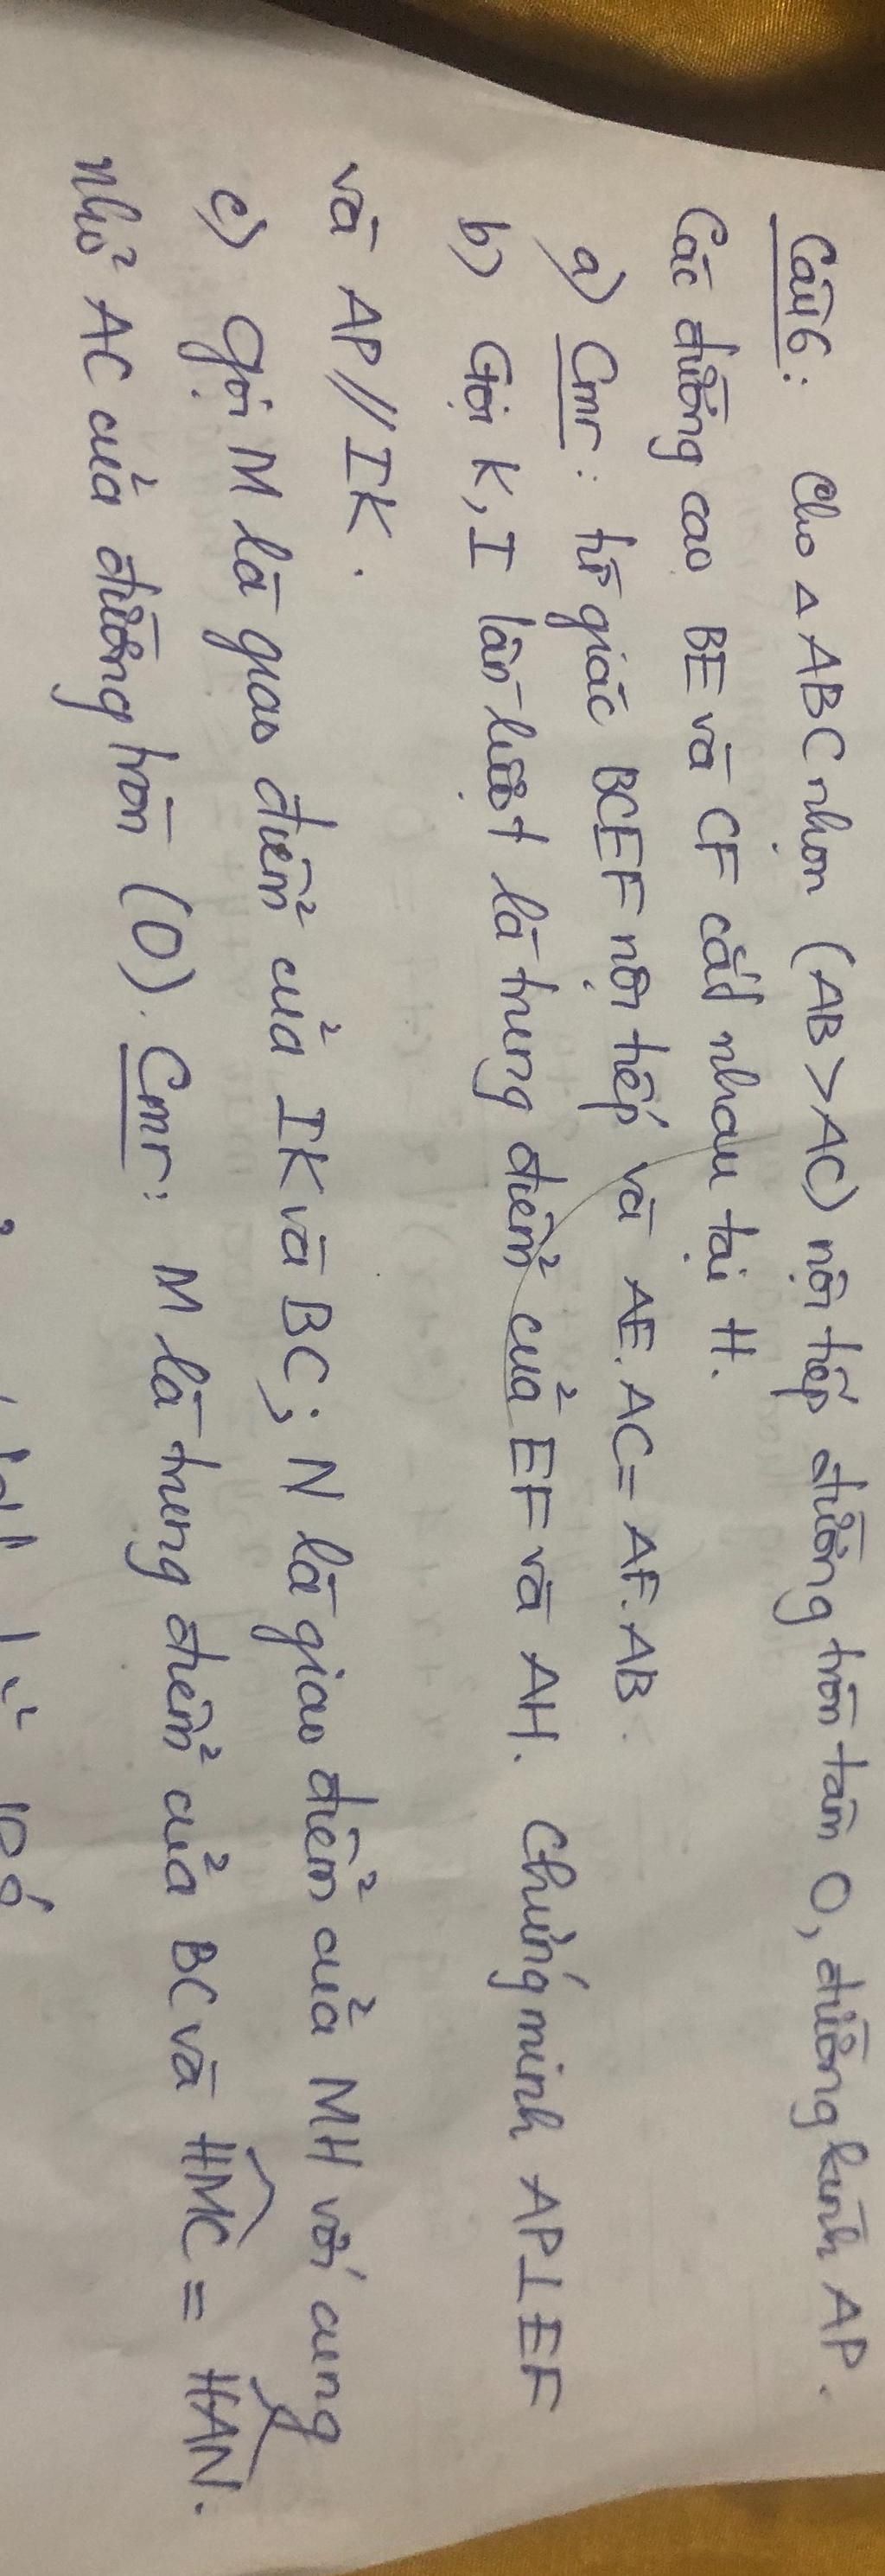 Câu 6: Cho △ ABC nhọn (AB > AC) nội tiếp đường tròn tâm O, đường kính AP.
Các đường cao BE và CF cắt nhau tại H.
a) Cmr: tứ giác BCEF nội tiếp và AE.AC = AF.AB.
b) Gọi K, I lần lượt là trung điểm của EF và AH. Chứng minh AP⊥EF
và AP // IK.
c) Gọi M là giao điểm của IK và BC; N là giao điểm của MH với cung
nhỏ AC của đường tròn (O). Cmr: M là trung điểm của BC và HMC = HAN.